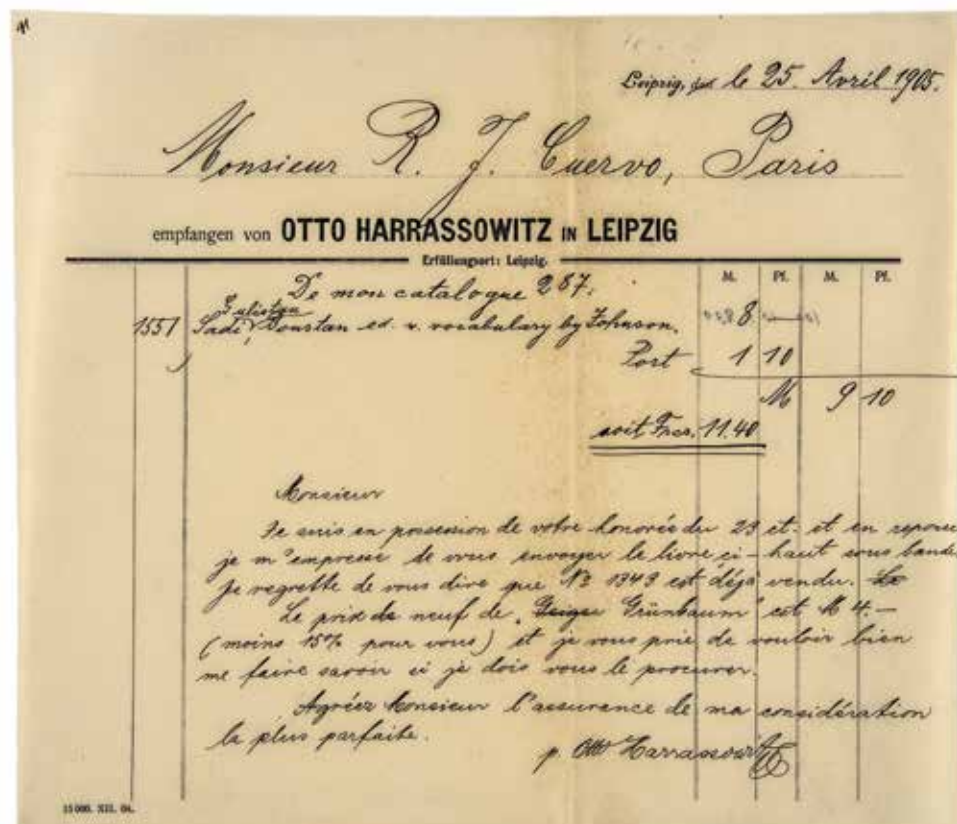 Leipzig, den le 25. Avril 1905.
Monsieur R. J. Cuervo, Paris
empfangen von OTTO HARRASSOWITZ IN LEIPZIG
Erfüllungsort: Leipzig.
M. Pf. M. Pf.
De mon catalogue 287.
Gulistan
1551 Sadi, Boustan ed. w. vocabulary by Johnson. 8
Port 1 10
M 9 10
soit Frcs. 11.40
Monsieur
Je suis en possession de votre honorée du 23 et en reponse
je m'empresse de vous envoyer le livre ci-haut sous bande
Je regrette de vous dire que No 1349 est déjà vendu.
Le prix de neuf de „Grünbaum" est M 4.—
(moins 15% pour vous) et je vous prie de vouloir bien
me faire savoir si je dois vous le procurer.
Agréez Monsieur l'assurance de ma considération
la plus parfaite.
p. Otto Harrassowitz
15000. XII. 04.